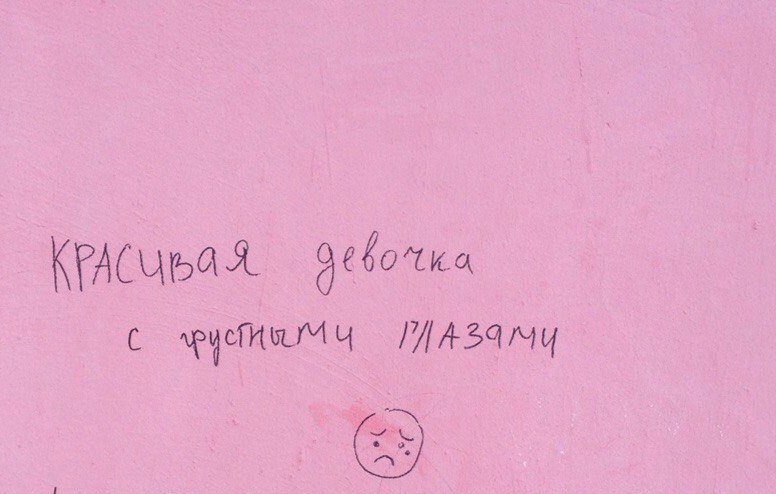 КРАСИВАЯ девочка
с грустными ГЛАЗАМИ